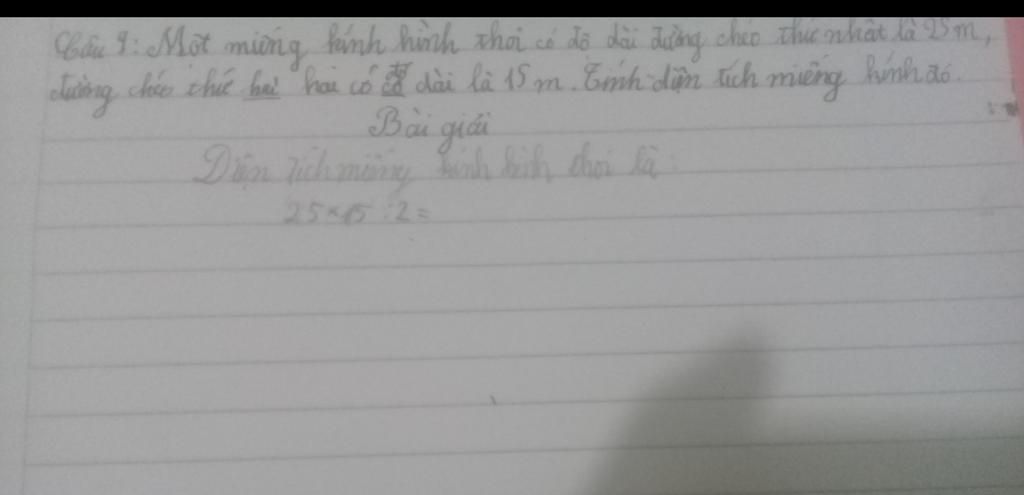 Câu 9: Một miếng kính hình thoi có độ dài đường chéo thứ nhất là 25 m,
đường chéo thứ hai hai có độ dài là 15 m. Tính diện tích miếng kính đó.
Bài giải
Diện tích miếng kính hình thoi là:
25 × 15 : 2 =